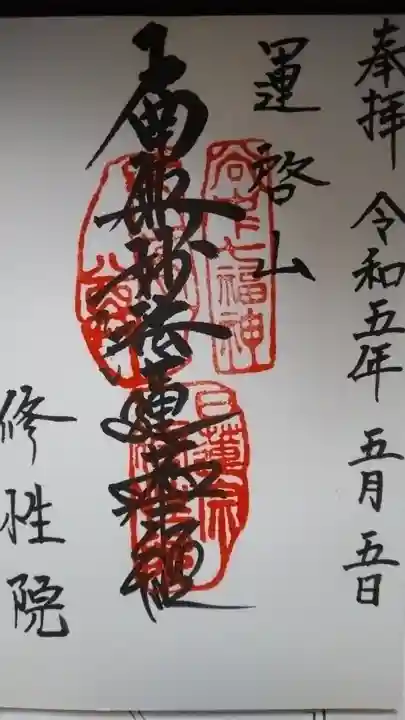 奉拝 令和五年 五月 五日
運啓山
谷中七福神
南無妙法蓮華経
日蓮宗
修性院